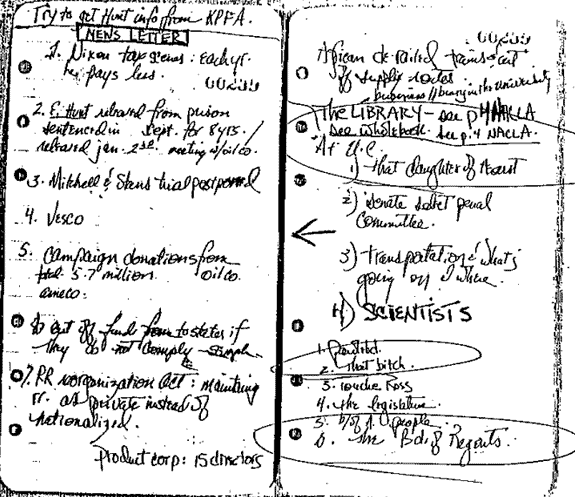 Try to get Hunt info from KPFA.
NEWS LETTER
1. Nixon tax : each yr.
he pays less.
00233
2. E. Hunt released from prison
sentenced in Sept. for 8 yrs./
released Jan. 2nd. meeting w/oil co.
3. Mitchell & Stans trial postponed
4. VESCO
5. campaign donations from
5.7 million. oil co.
6 out of funds from to states if
they do not comply
7. RR reorganization act: maintaining
rr. as private instead of
nationalized.
product corp: 15 directors
00233
African detailed
of supply
in the University
The LIBRARY - see p 4 NACLA
see whole book. see p. 4 NACLA.
At U.C.
1) that daughter of Hearst
2) senate select penal
committee.
3) transportation & what's
going on & where
4) SCIENTISTS
1.
2. that bitch.
3. Touche Ross
4. the legislature
5. people
6. The Bd of Regents.